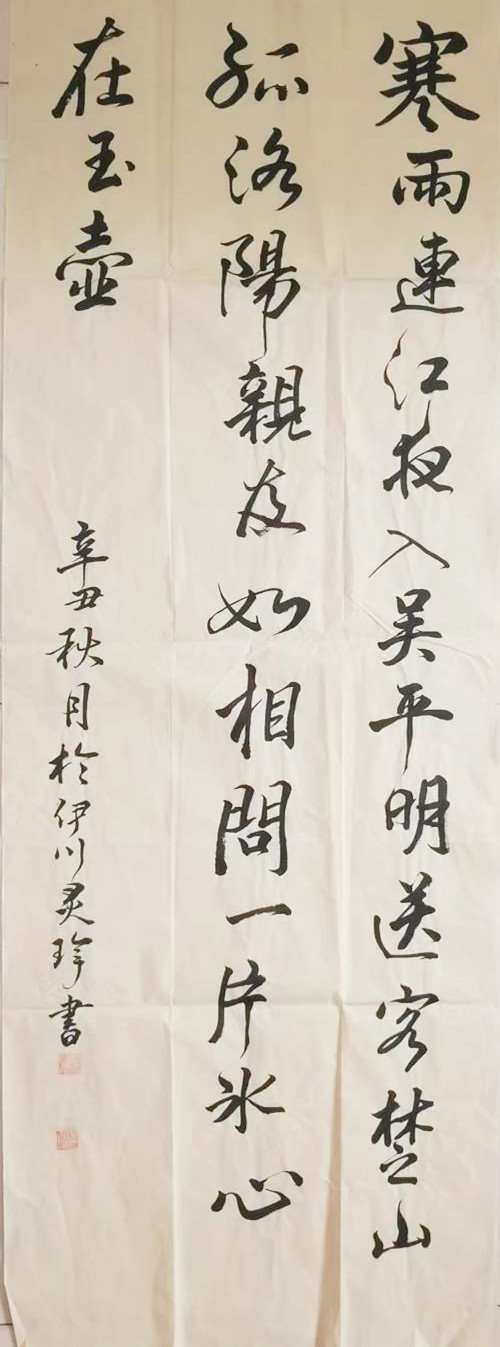 寒雨連江夜入吴平明送客楚山
孤洛陽親友如相問一片冰心
在玉壺
辛丑秋月於伊川灵珍書